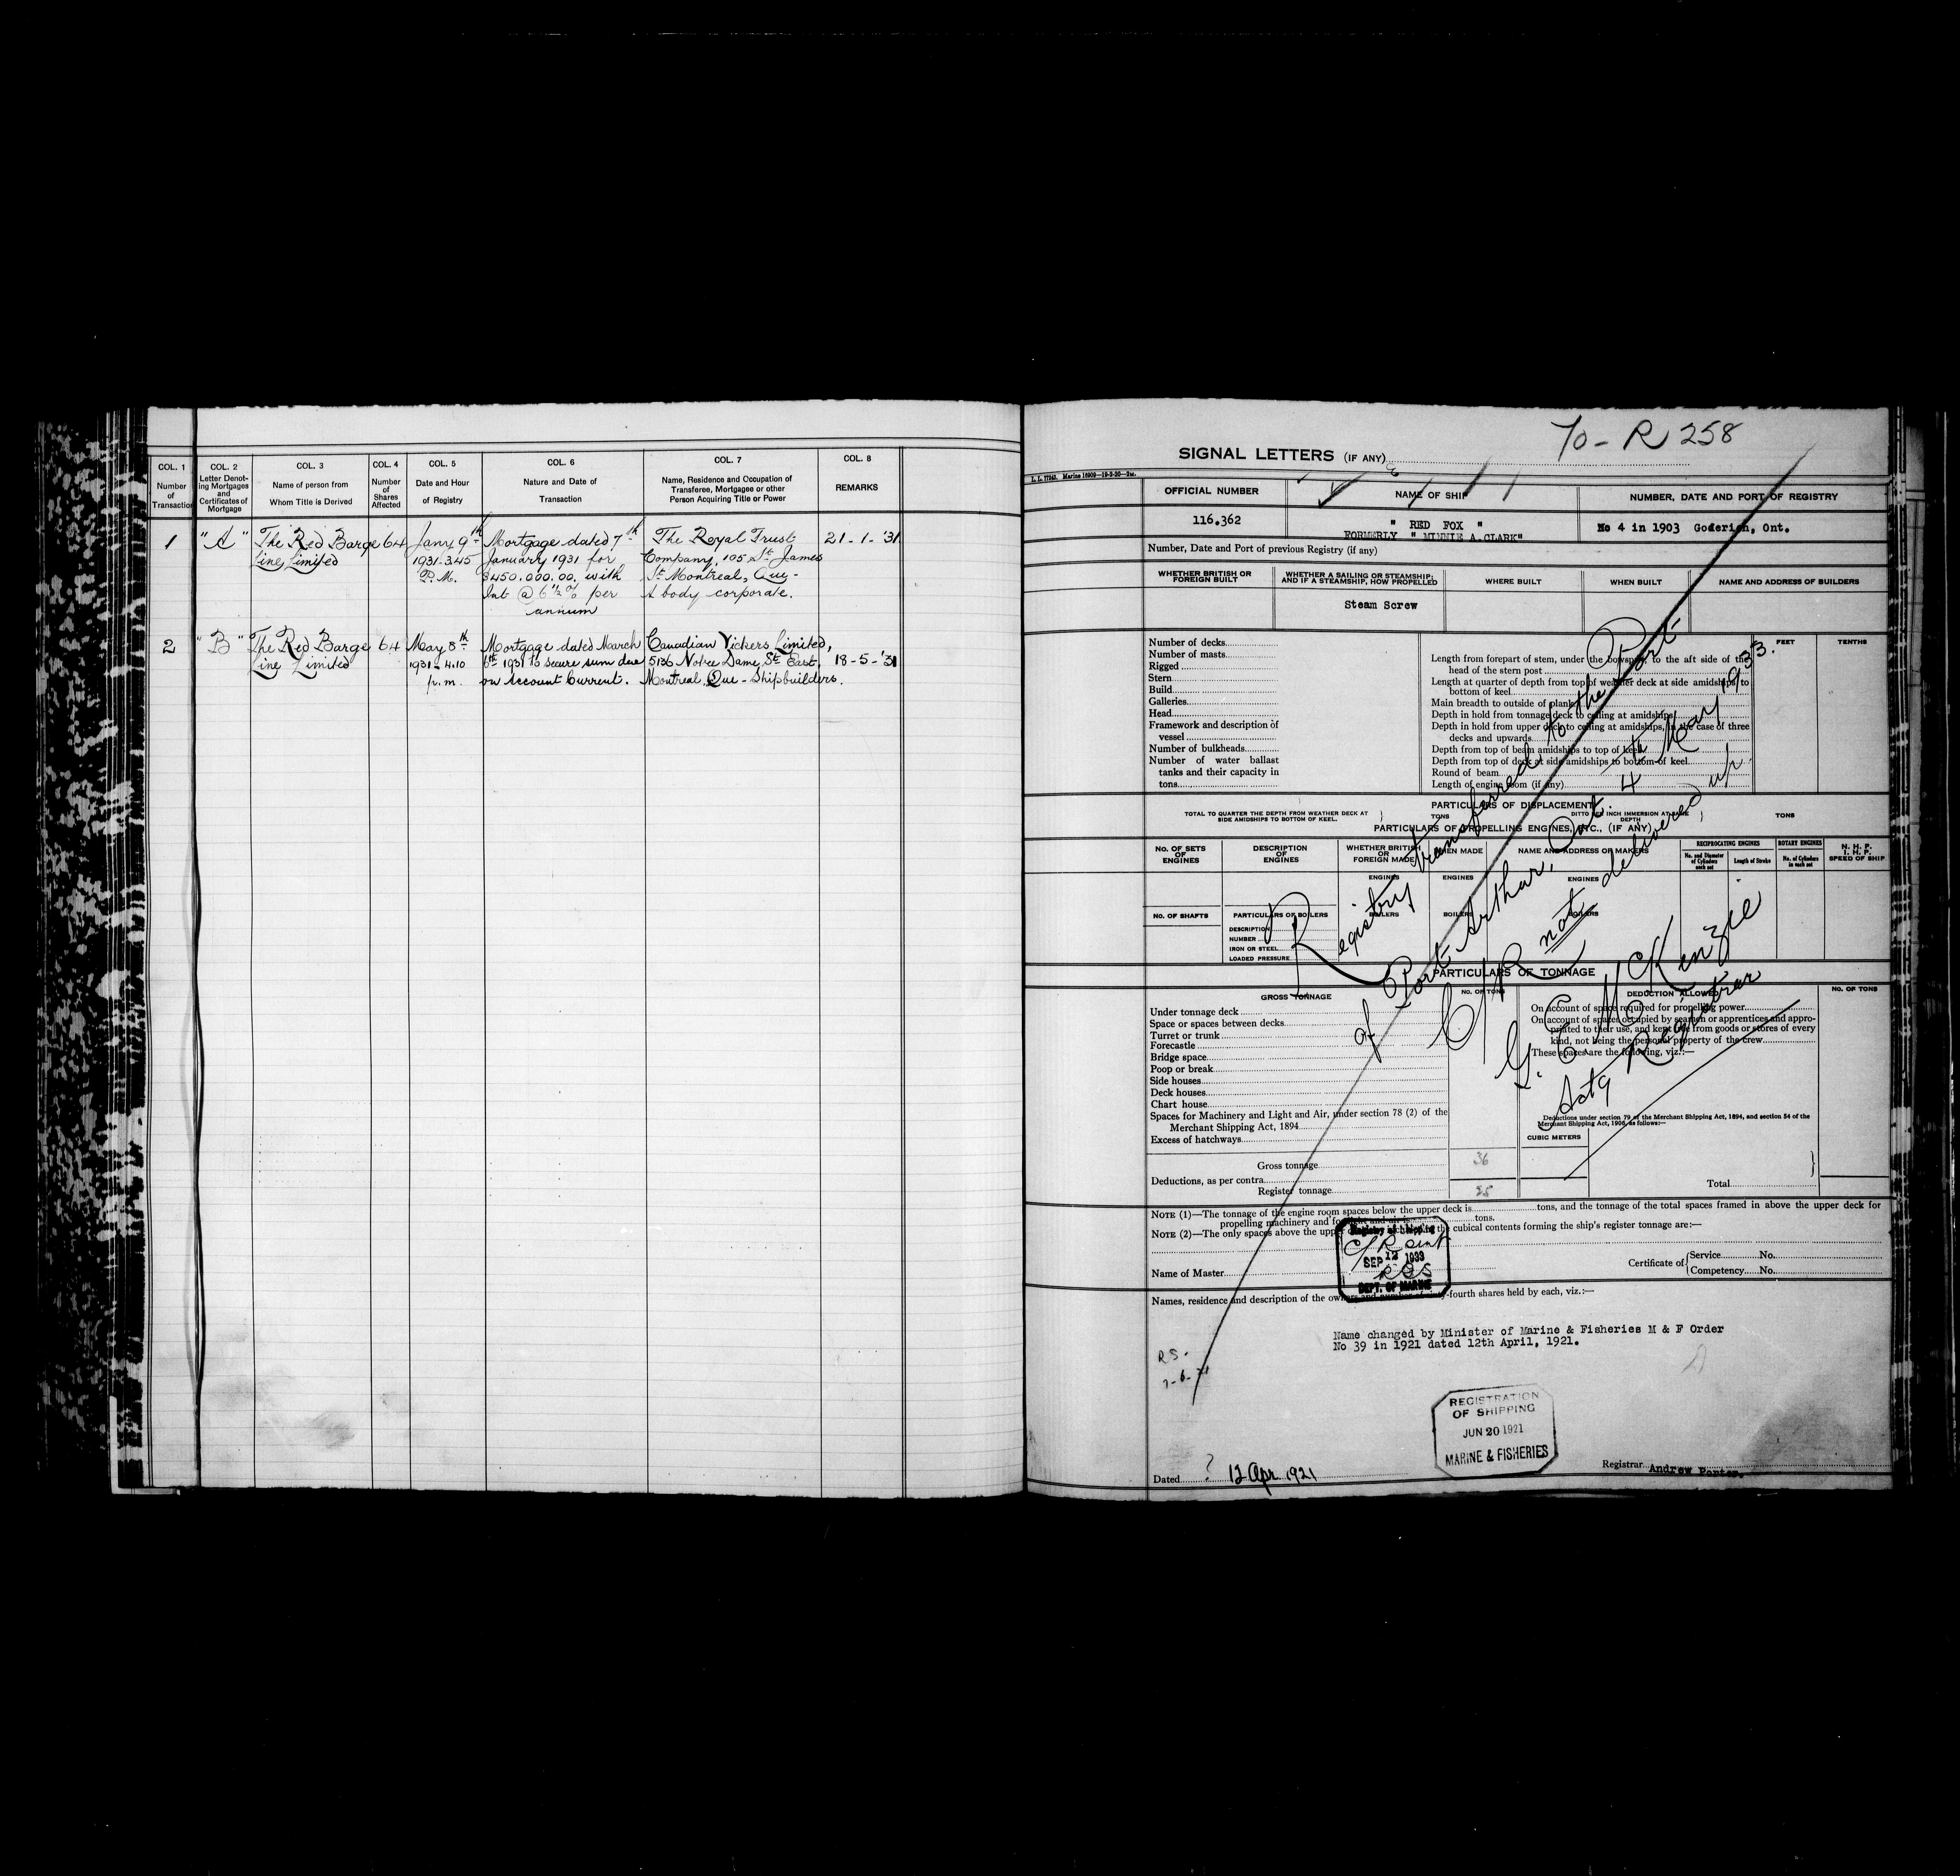 COL. 1
Number
of
Transaction
COL. 2
Letter Denot-
ing Mortgages
and
Certificates of
Mortgage
COL. 3
Name of person from
Whom Title is Derived
COL. 4
Number
of
Shares
Affected
COL. 5
Date and Hour
of Registry
COL. 6
Nature and Date of
Transaction
COL. 7
Name, Residence and Occupation of
Transferee, Mortgagee or other
Person Acquiring Title or Power
COL. 8
REMARKS
1
"A"
The Red Barge
Line Limited
64
Jany 9th
1931-3.45
P.M.
Mortgage dated 7th
January 1931 for
$450.000.00. with
Int @ 6½% per
annum
The Royal Trust
Company, 105 St James
St Montreal, Que-
A body corporate.
21-1-'31
2
"B"
The Red Barge
Line Limited
64
May 8th
1931-4.10
p.m.
Mortgage dated March
6th 1931 to secure sum due
on Account Current.
Canadian Vickers Limited,
5136 Notre Dame St East,
Montreal, Que - Shipbuilders.
18-5-'31
To - R 258
SIGNAL LETTERS (IF ANY)
OFFICIAL NUMBER
NAME OF SHIP
NUMBER, DATE AND PORT OF REGISTRY
116.362
" RED FOX "
FORMERLY " MINNIE A.CLARK"
No 4 in 1903 Goderich, Ont.
Number, Date and Port of previous Registry (if any)
WHETHER BRITISH OR
FOREIGN BUILT
WHETHER A SAILING OR STEAMSHIP;
AND IF A STEAMSHIP, HOW PROPELLED
WHERE BUILT
WHEN BUILT
NAME AND ADDRESS OF BUILDERS
Steam Screw
Number of decks
Number of masts
Rigged
Stern
Build
Galleries
Head
Framework and description of
vessel
Number of bulkheads
Number of water ballast
tanks and their capacity in
tons
FEET
TENTHS
Length from forepart of stem, under the bowsprit, to the aft side of the
head of the stern post
Length at quarter of depth from top of weather deck at side amidships to
bottom of keel
Main breadth to outside of plank
Depth in hold from tonnage deck to ceiling at amidships
Depth in hold from upper deck to ceiling at amidships, in the case of three
decks and upwards
Depth from top of beam amidships to top of keel
Depth from top of deck at side amidships to bottom of keel
Round of beam
Length of engine room (if any)
PARTICULARS OF DISPLACEMENT
TOTAL TO QUARTER THE DEPTH FROM WEATHER DECK AT
SIDE AMIDSHIPS TO BOTTOM OF KEEL.
TONS
DITTO PER INCH IMMERSION AT SAME
DEPTH
TONS
PARTICULARS OF PROPELLING ENGINES, ETC., (IF ANY)
NO. OF SETS
OF
ENGINES
DESCRIPTION
OF
ENGINES
WHETHER BRITISH
OR
FOREIGN MADE
WHEN MADE
NAME AND ADDRESS OF MAKERS
RECIPROCATING ENGINES
No. and Diameter
of Cylinders
each set
Length of Stroke
ROTARY ENGINES
No. of Cylinders
in each set
N. H. P.
I. H. P.
SPEED OF SHIP
ENGINES
ENGINES
ENGINES
NO. OF SHAFTS
PARTICULARS OF BOILERS
DESCRIPTION
NUMBER
IRON OR STEEL
LOADED PRESSURE
BOILERS
BOILERS
BOILERS
Registry transferred to the Port
of Port Arthur, Ont. 4th May 1933.
C/R not delivered up
G. E. McKenzie
Actg Registrar
PARTICULARS OF TONNAGE
GROSS TONNAGE
NO. OF TONS
DEDUCTION ALLOWED
NO. OF TONS
Under tonnage deck
Space or spaces between decks
Turret or trunk
Forecastle
Bridge space
Poop or break
Side houses
Deck houses
Chart house
Spaces for Machinery and Light and Air, under section 78 (2) of the
Merchant Shipping Act, 1894
Excess of hatchways
Gross tonnage
36
Deductions, as per contra
Register tonnage
25
On account of space required for propelling power
On account of spaces occupied by seamen or apprentices and appro-
priated to their use, and kept free from goods or stores of every
kind, not being the personal property of the crew
These spaces are the following, viz.:—
Deductions under section 79 of the Merchant Shipping Act, 1894, and section 54 of the
Merchant Shipping Act, 1906, as follows:—
CUBIC METERS
Total
NOTE (1)—The tonnage of the engine room spaces below the upper deck is tons, and the tonnage of the total spaces framed in above the upper deck for
propelling machinery and for light and air is tons.
NOTE (2)—The only spaces above the upper deck included in the cubical contents forming the ship's register tonnage are:—
Registry of Shipping
C/R
SEP 12 1933
DEPT. OF MARINE
Name of Master
Certificate of
Service No.
Competency No.
Names, residence and description of the owners and number of sixty-fourth shares held by each, viz.:—
Name changed by Minister of Marine & Fisheries M & F Order
No 39 in 1921 dated 12th April, 1921.
R.S.
REGISTRATION
OF SHIPPING
JUN 20 1921
MARINE & FISHERIES
Dated ? 12 Apr. 1921
Registrar Andrew Porter.